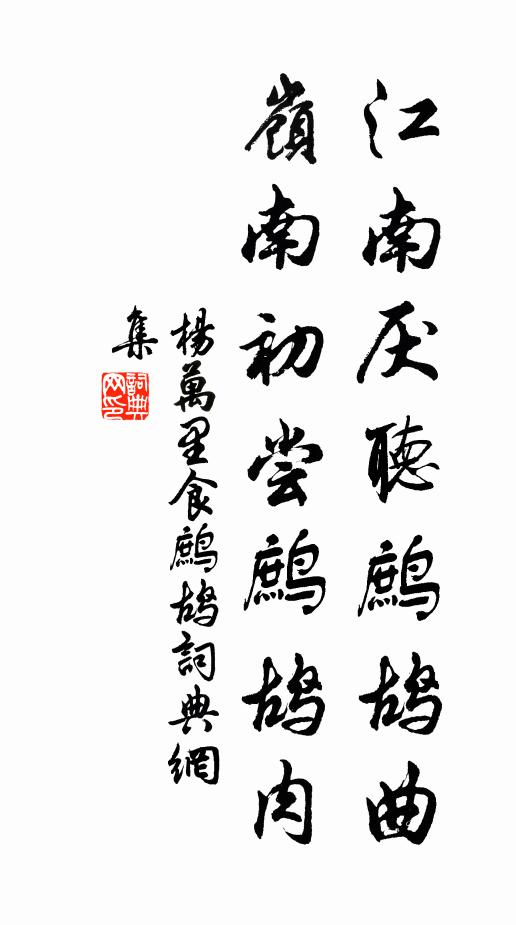 江南厌聽鷓鴣曲
嶺南初尝鷓鴣肉
楊萬里食鷓鴣詞典網
集
詞典
网印